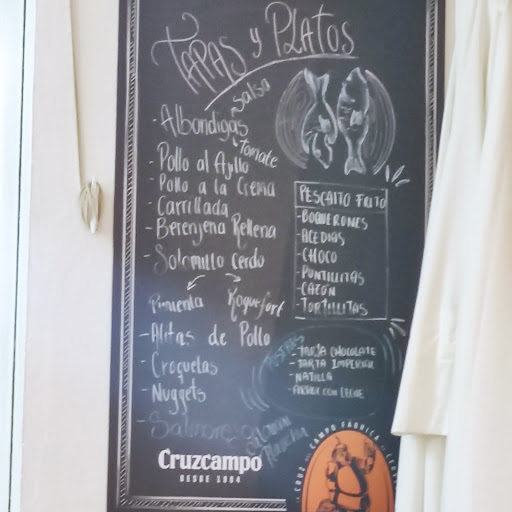 TAPAS y PLATOS
- Albondigas salsa tomate
- Pollo al Ajllo
- Pollo a la Crema
- Carrillada
- Berenjena Rellena
- Solomillo Cerdo
Pimienta Roquefort
- Alitas de Pollo
- Croquetas
- Nuggets
PESCAITO FRITO
- BOQUERONES
- ACEDIAS
- CHOCO
- PUNTILLITAS
- CAZÓN
- TORTILLITAS
POSTRES
- TARTA CHOCOLATE
- TARTA IMPERIAL
- NATILLA
CON LECHE
Cruzcampo
DESDE 1904
CRUZ DEL CAMPO FABRICA DE